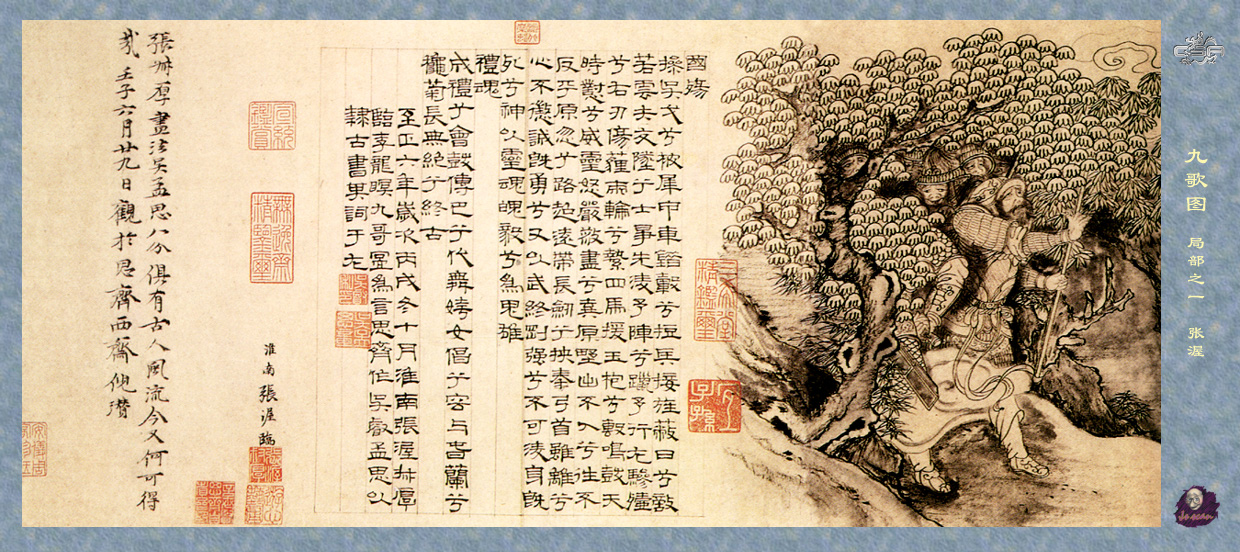 九歌图 局部之一 张渥
國殤
操吳戈兮被犀甲車錯轂兮短兵接旌蔽日兮敵
若雲矢交墜兮士爭先凌予陣兮躐予行左驂殪
兮右刃傷霾兩輪兮縶四馬援玉枹兮擊鳴鼓天
時懟兮威靈怒嚴殺盡兮棄原壄出不入兮往不
反平原忽兮路超遠帶長劍兮挾秦弓首雖離兮
心不懲誠既勇兮又以武終剛强兮不可凌身既
死兮神以靈魂魄毅兮為鬼雄
禮魂
成禮兮會鼓傳巴兮代舞姱女倡兮容与春蘭兮
龝菊長無絶兮終古
至正六年歲次丙戌冬十月淮南張渥叔厚
臨李龍眠九哥圖為言思齊作吳叡孟思以
隸古書其詞于左
淮南張渥臨
張叔厚畫法吳孟思八分俱有古人風流今又何可得
哉壬子六月廿九日觀於思齊西齋倪瓚